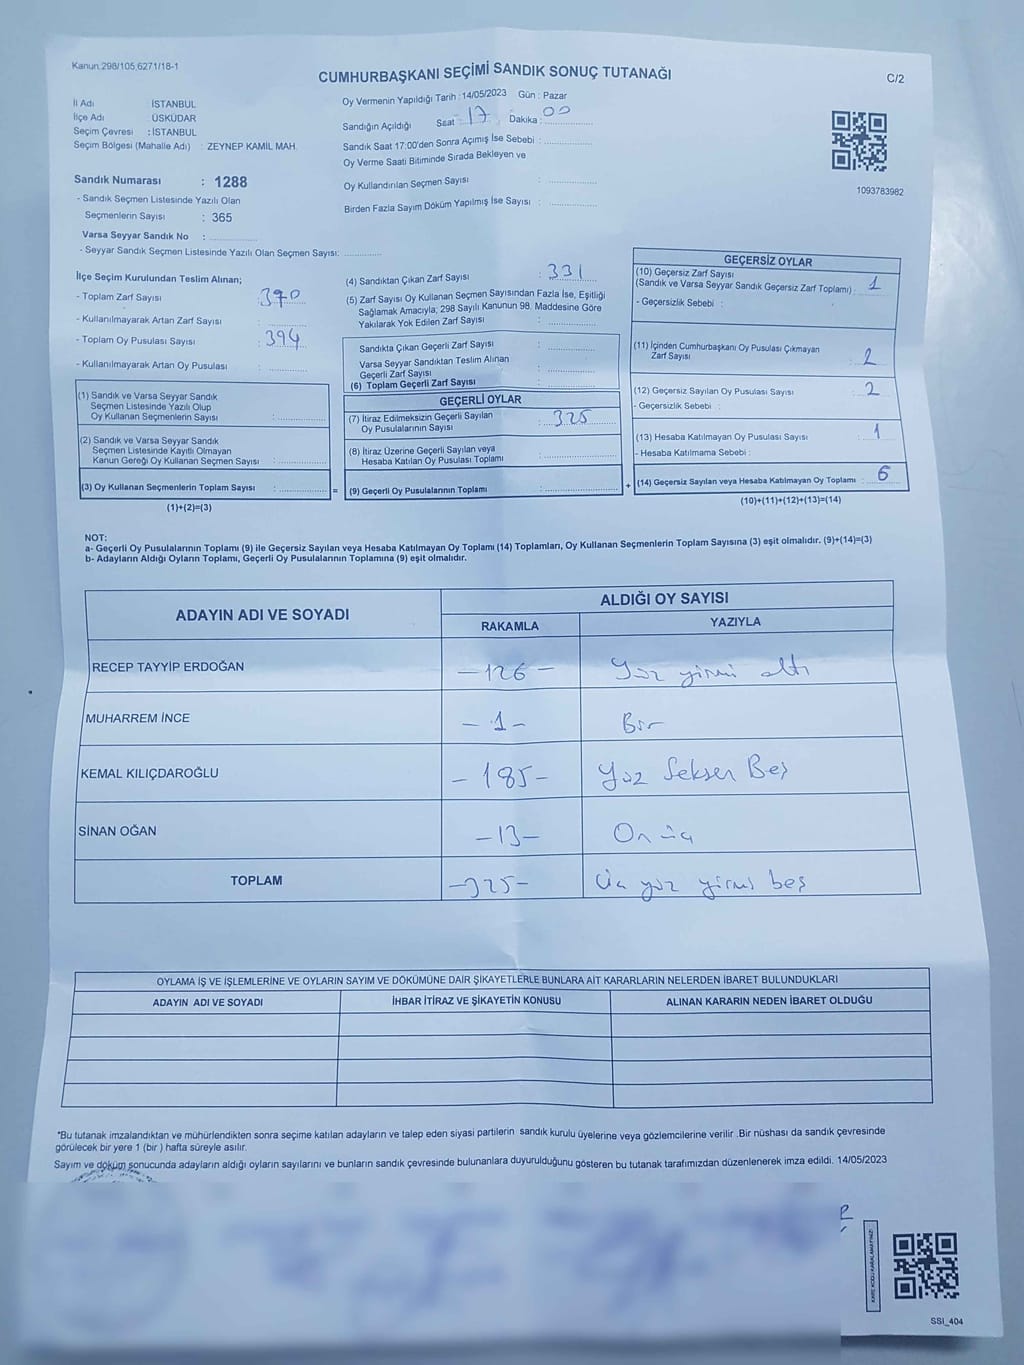 Kanun.298/105,6271/18-1
CUMHURBAŞKANI SEÇİMİ SANDIK SONUÇ TUTANAĞI
C/2
İl Adı : İSTANBUL
İlçe Adı : ÜSKÜDAR
Seçim Çevresi : İSTANBUL
Seçim Bölgesi (Mahalle Adı) : ZEYNEP KAMİL MAH.
Oy Vermenin Yapıldığı Tarih : 14/05/2023 Gün : Pazar
Sandığın Açıldığı Saat : 17 Dakika : 00
Sandık Saat 17:00'den Sonra Açımış İse Sebebi :
Oy Verme Saati Bitiminde Sırada Bekleyen ve
Oy Kullandırılan Seçmen Sayısı :
Birden Fazla Sayım Döküm Yapılmış İse Sayısı :
1093783982
Sandık Numarası : 1288
- Sandık Seçmen Listesinde Yazılı Olan
Seçmenlerin Sayısı : 365
Varsa Seyyar Sandık No :
- Seyyar Sandık Seçmen Listesinde Yazılı Olan Seçmen Sayısı:
İlçe Seçim Kurulundan Teslim Alınan;
- Toplam Zarf Sayısı : 370
- Kullanılmayarak Artan Zarf Sayısı :
- Toplam Oy Pusulası Sayısı : 394
- Kullanılmayarak Artan Oy Pusulası :
(1) Sandık ve Varsa Seyyar Sandık
Seçmen Listesinde Yazılı Olup
Oy Kullanan Seçmenlerin Sayısı :
(2) Sandık ve Varsa Seyyar Sandık
Seçmen Listesinde Kayıtlı Olmayan
Kanun Gereği Oy Kullanan Seçmen Sayısı :
(3) Oy Kullanan Seçmenlerin Toplam Sayısı : =
(1)+(2)=(3)
(4) Sandıktan Çıkan Zarf Sayısı : 331
(5) Zarf Sayısı Oy Kullanan Seçmen Sayısından Fazla İse, Eşitliği
Sağlamak Amacıyla; 298 Sayılı Kanunun 98. Maddesine Göre
Yakılarak Yok Edilen Zarf Sayısı :
Sandıkta Çıkan Geçerli Zarf Sayısı :
Varsa Seyyar Sandıktan Teslim Alınan
Geçerli Zarf Sayısı :
(6) Toplam Geçerli Zarf Sayısı :
GEÇERLİ OYLAR
(7) İtiraz Edilmeksizin Geçerli Sayılan
Oy Pusulalarının Sayısı : 325
(8) İtiraz Üzerine Geçerli Sayılan veya
Hesaba Katılan Oy Pusulası Toplamı :
(9) Geçerli Oy Pusulalarının Toplamı : +
GEÇERSİZ OYLAR
(10) Geçersiz Zarf Sayısı
(Sandık ve Varsa Seyyar Sandık Geçersiz Zarf Toplamı) : 1
- Geçersizlik Sebebi :
(11) İçinden Cumhurbaşkanı Oy Pusulası Çıkmayan
Zarf Sayısı : 2
(12) Geçersiz Sayılan Oy Pusulası Sayısı : 2
- Geçersizlik Sebebi :
(13) Hesaba Katılmayan Oy Pusulası Sayısı : 1
- Hesaba Katılmama Sebebi :
(14) Geçersiz Sayılan veya Hesaba Katılmayan Oy Toplamı : 6
(10)+(11)+(12)+(13)=(14)
NOT:
a- Geçerli Oy Pusulalarının Toplamı (9) ile Geçersiz Sayılan veya Hesaba Katılmayan Oy Toplamı (14) Toplamları, Oy Kullanan Seçmenlerin Toplam Sayısına (3) eşit olmalıdır. (9)+(14)=(3)
b- Adayların Aldığı Oyların Toplamı, Geçerli Oy Pusulalarının Toplamına (9) eşit olmalıdır.
ADAYIN ADI VE SOYADI
ALDIĞI OY SAYISI
RAKAMLA YAZIYLA
RECEP TAYYİP ERDOĞAN -126- Yüz yirmi altı
MUHARREM İNCE -1- Bir
KEMAL KILIÇDAROĞLU -185- Yüz Seksen Beş
SİNAN OĞAN -13- On üç
TOPLAM -325- Üç yüz yirmi beş
OYLAMA İŞ VE İŞLEMLERİNE VE OYLARIN SAYIM VE DÖKÜMÜNE DAİR ŞİKAYETLERLE BUNLARA AİT KARARLARIN NELERDEN İBARET BULUNDUKLARI
ADAYIN ADI VE SOYADI İHBAR İTİRAZ VE ŞİKAYETİN KONUSU ALINAN KARARIN NEDEN İBARET OLDUĞU
*Bu tutanak imzalandıktan ve mühürlendikten sonra seçime katılan adayların ve talep eden siyasi partilerin sandık kurulu üyelerine veya gözlemcilerine verilir .Bir nüshası da sandık çevresinde
görülecek bir yere 1 (bir ) hafta süreyle asılır.
Sayım ve döküm sonucunda adayların aldığı oyların sayılarını ve bunların sandık çevresinde bulunanlara duyurulduğunu gösteren bu tutanak tarafımızdan düzenlenerek imza edildi. 14/05/2023
KARE KODU KARALAMAYINIZ!
SSI_404